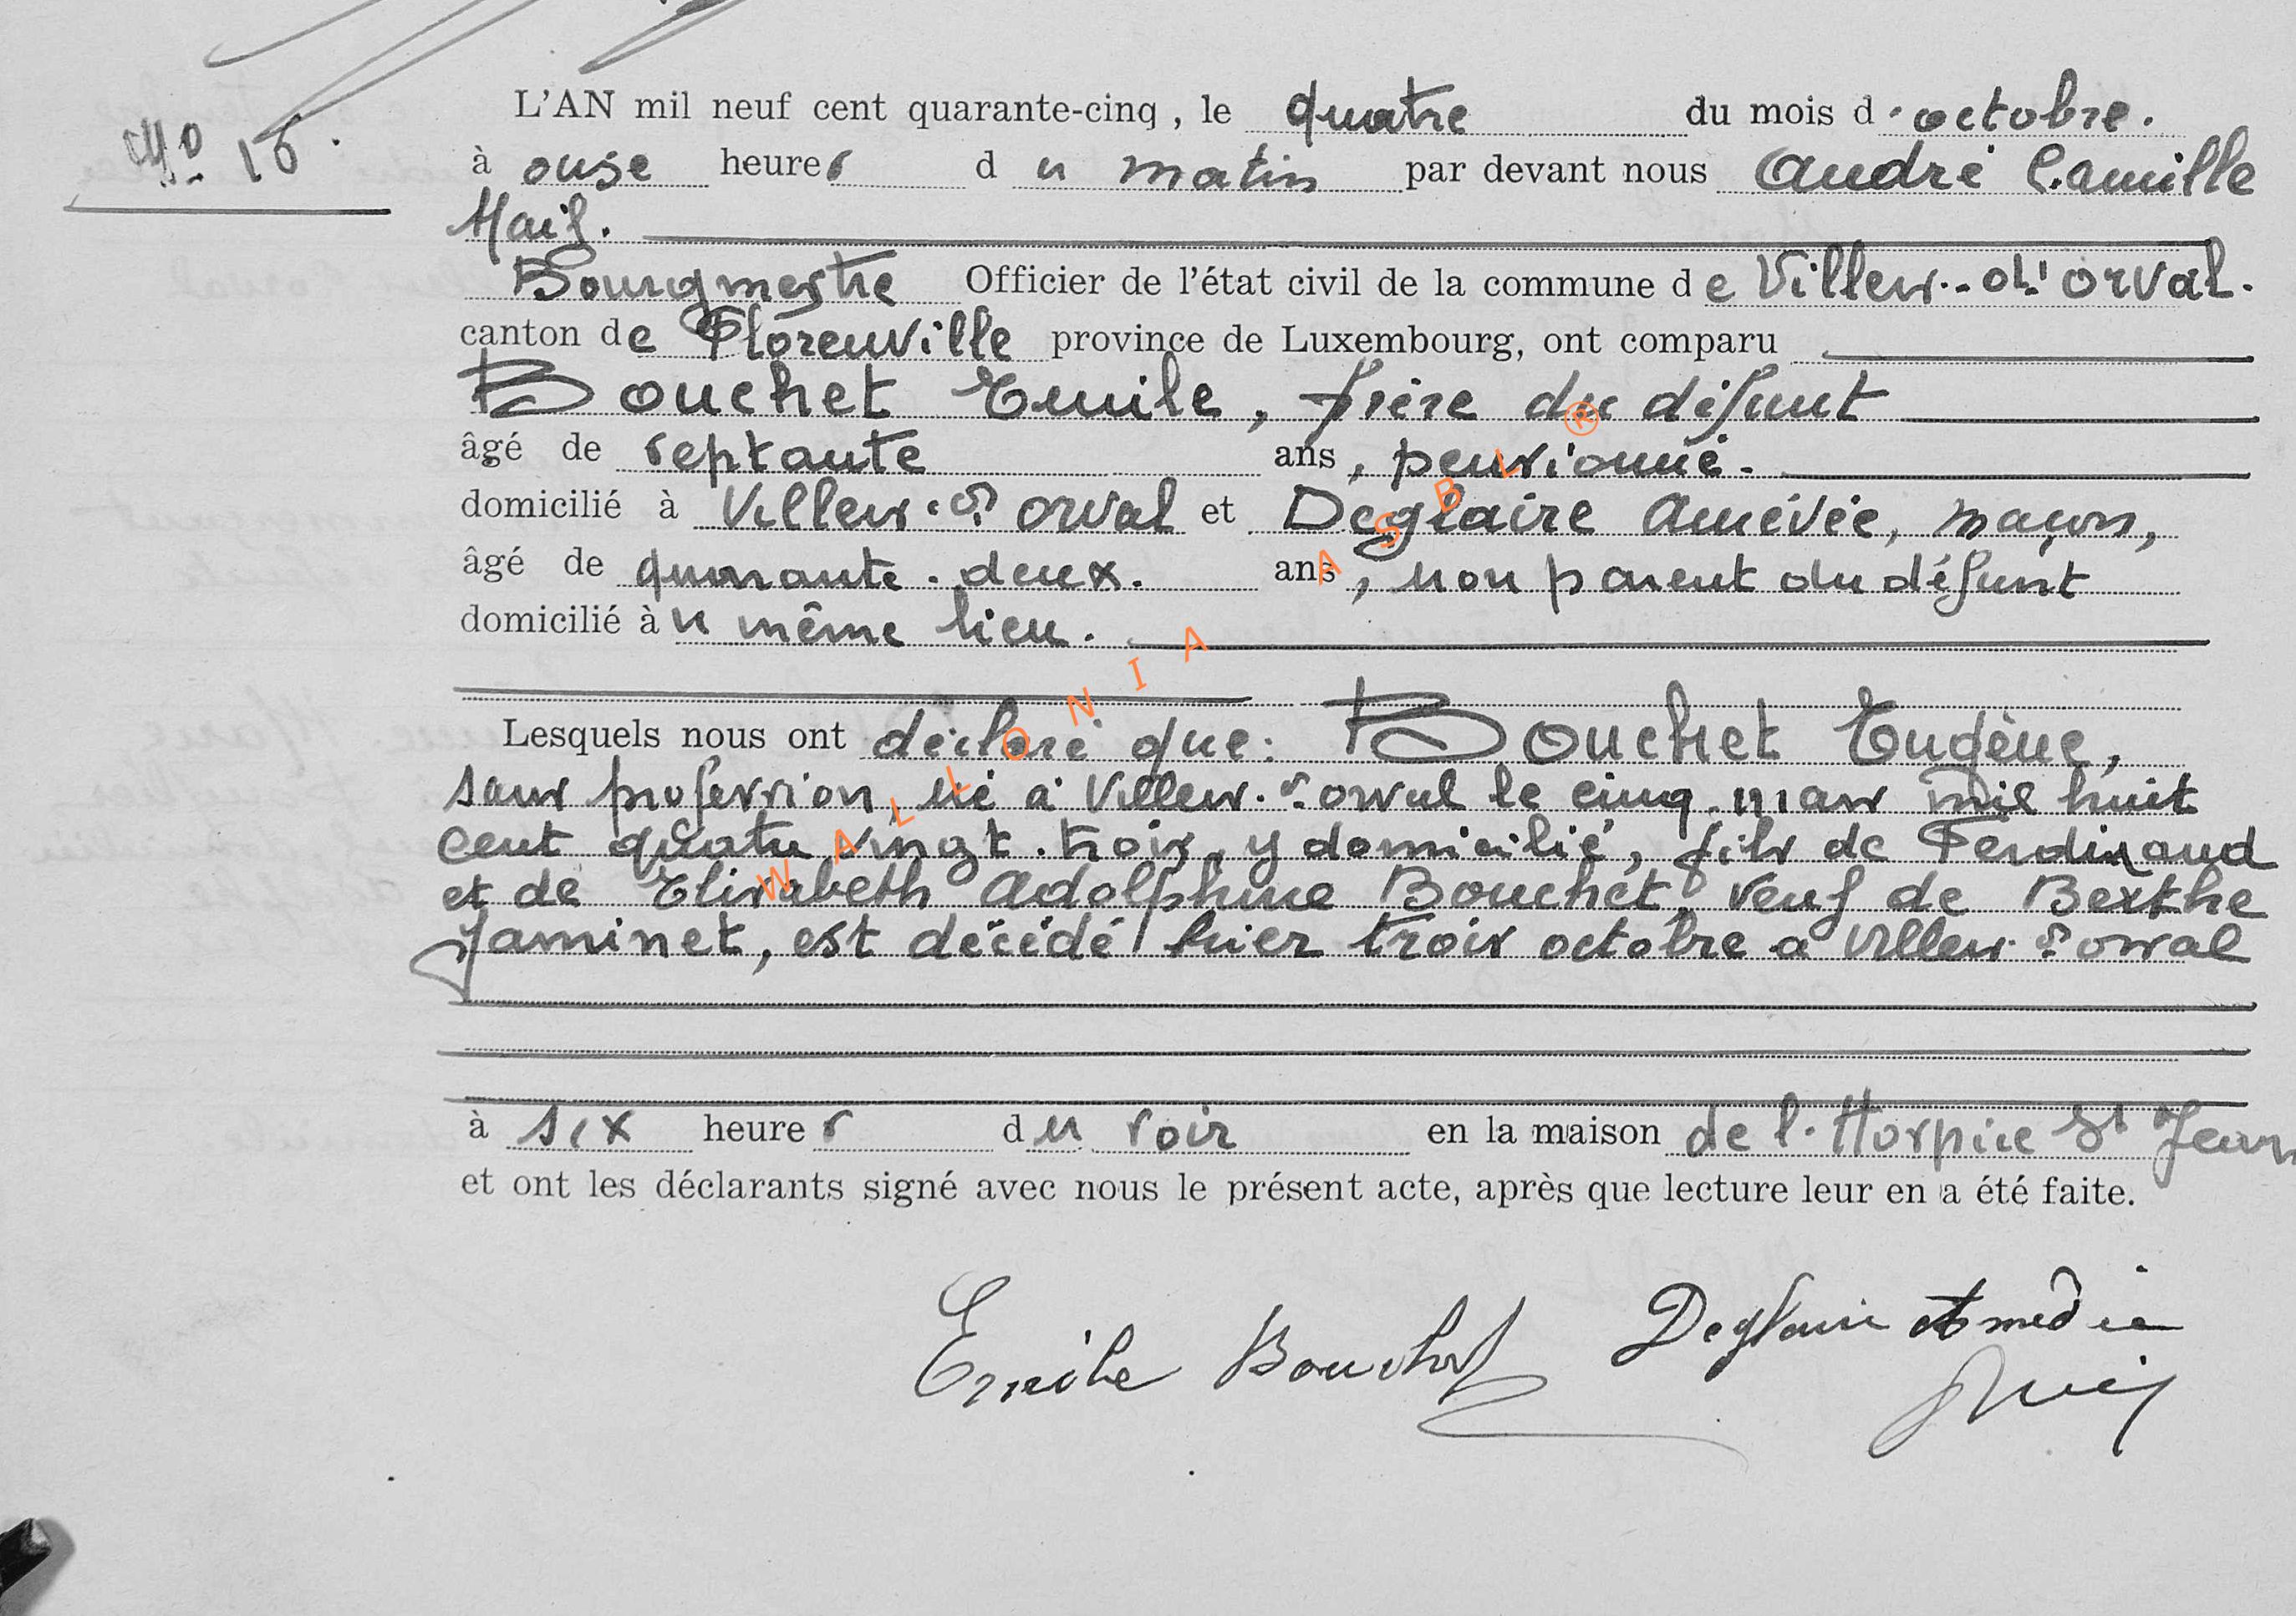 L'AN mil neuf cent quarante-cinq, le quatre du mois d'octobre.
N° 16.
à onze heures du matin par devant nous André Camille
Bourgmestre Officier de l'état civil de la commune de Villers-d'orval.
canton de Florenville province de Luxembourg, ont comparu
Bouchet Emile, frère du défunt
âgé de septante ans, pensionné.
domicilié à Villers-d'orval et Deglaire Amédée, maçon,
âgé de quarante-deux. ans, non parent du défunt
domicilié au même lieu.
Lesquels nous ont déclaré que: Bouchet Eugène,
sans profession, né à Villers-d'orval le cinq mars mil huit
cent quatre vingt-trois, y domicilié, fils de Ferdinand
et de Elisabeth Adolphine Bouchet, veuf de Berthe
Jaminet, est décédé hier trois octobre a Villers-d'orval
à six heures du soir en la maison de l'Hospice St Jean
et ont les déclarants signé avec nous le présent acte, après que lecture leur en a été faite.
Emile Bouchet Deglaire Amédée
WALLONIA ASBL ®